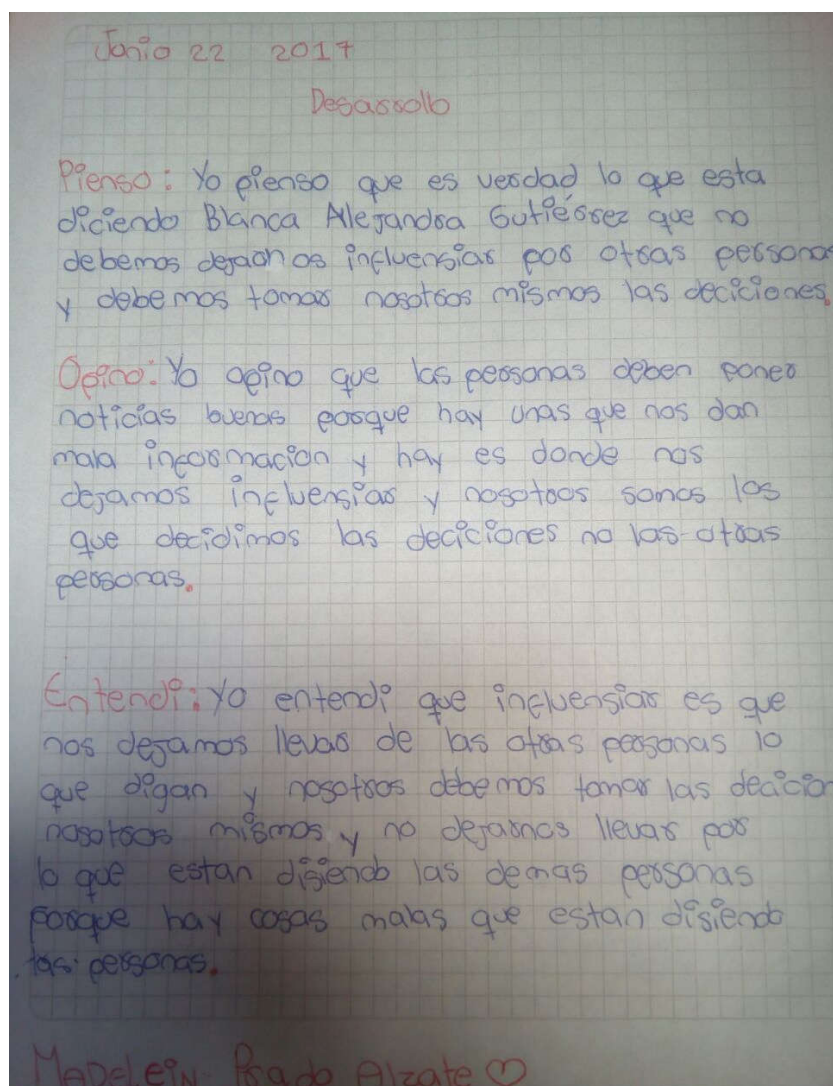 Junio 22 2017
Desarrollo
Pienso: Yo pienso que es verdad lo que esta
diciendo Blanca Alejandra Gutiérrez que no
debemos dejarnos influensiar por otras personas
y debemos tomar nosotros mismos las deciciones.
Opino: Yo opino que las personas deben poner
noticias buenas porque hay unas que nos dan
mala informacion y hay es donde nos
dejamos influensiar y nosotros somos los
que decidimos las deciciones no las otras
personas.
Entendi: Yo entendi que influensiar es que
nos dejamos llevar de las otras personas lo
que digan y nosotros debemos tomar las decicion
nosotros mismos y no dejarnos llevar por
lo que estan disiendo las demas personas
porque hay cosas malas que estan disiendo
las personas.
MADeLEiN Prado Alzate ♡